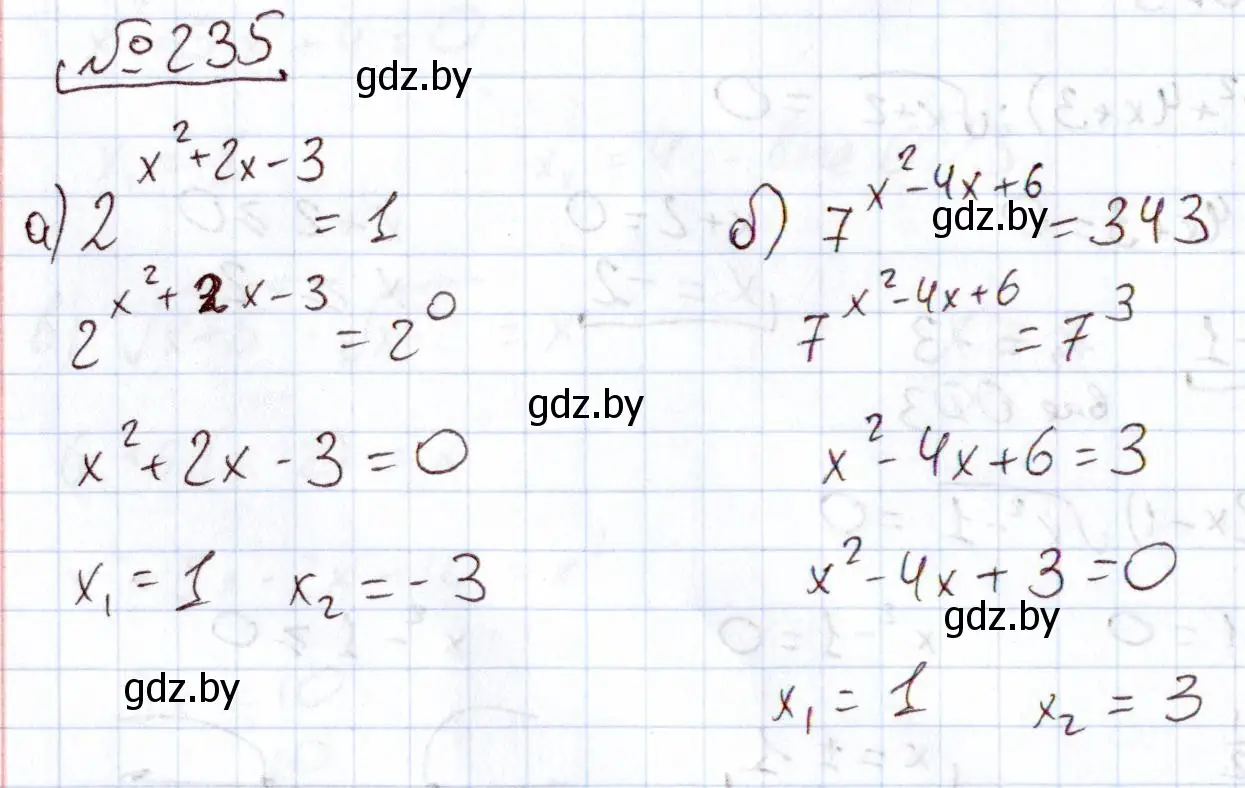 №235
gdz.by
а) 2^(x²+2x-3) = 1
2^(x²+2x-3) = 2^0
gdz.by
x²+2x-3=0
x₁=1 x₂=-3
gdz.by
б) 7^(x²-4x+6) = 343
gdz.by
7^(x²-4x+6) = 7³
x²-4x+6=3
x²-4x+3=0
gdz.by
x₁=1 x₂=3